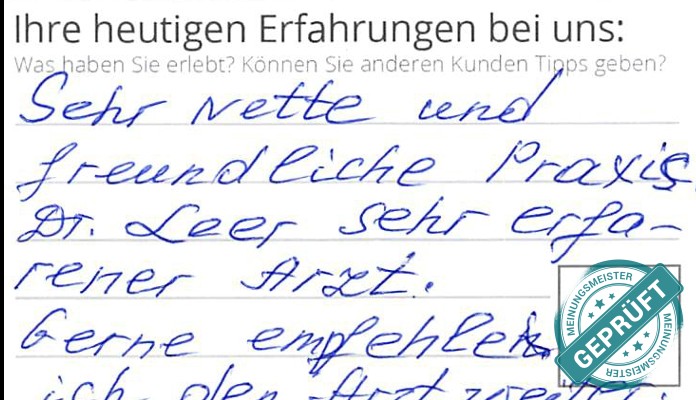 Ihre heutigen Erfahrungen bei uns:
Was haben Sie erlebt? Können Sie anderen Kunden Tipps geben?
Sehr nette und
freundliche Praxis
Dr. Leer sehr erfa-
rener Arzt.
Gerne empfehlen
ich den Arzt weiter.
MEINUNGSMEISTER
GEPRÜFT
MEINUNGSMEISTER
MEINUNGSMEISTER